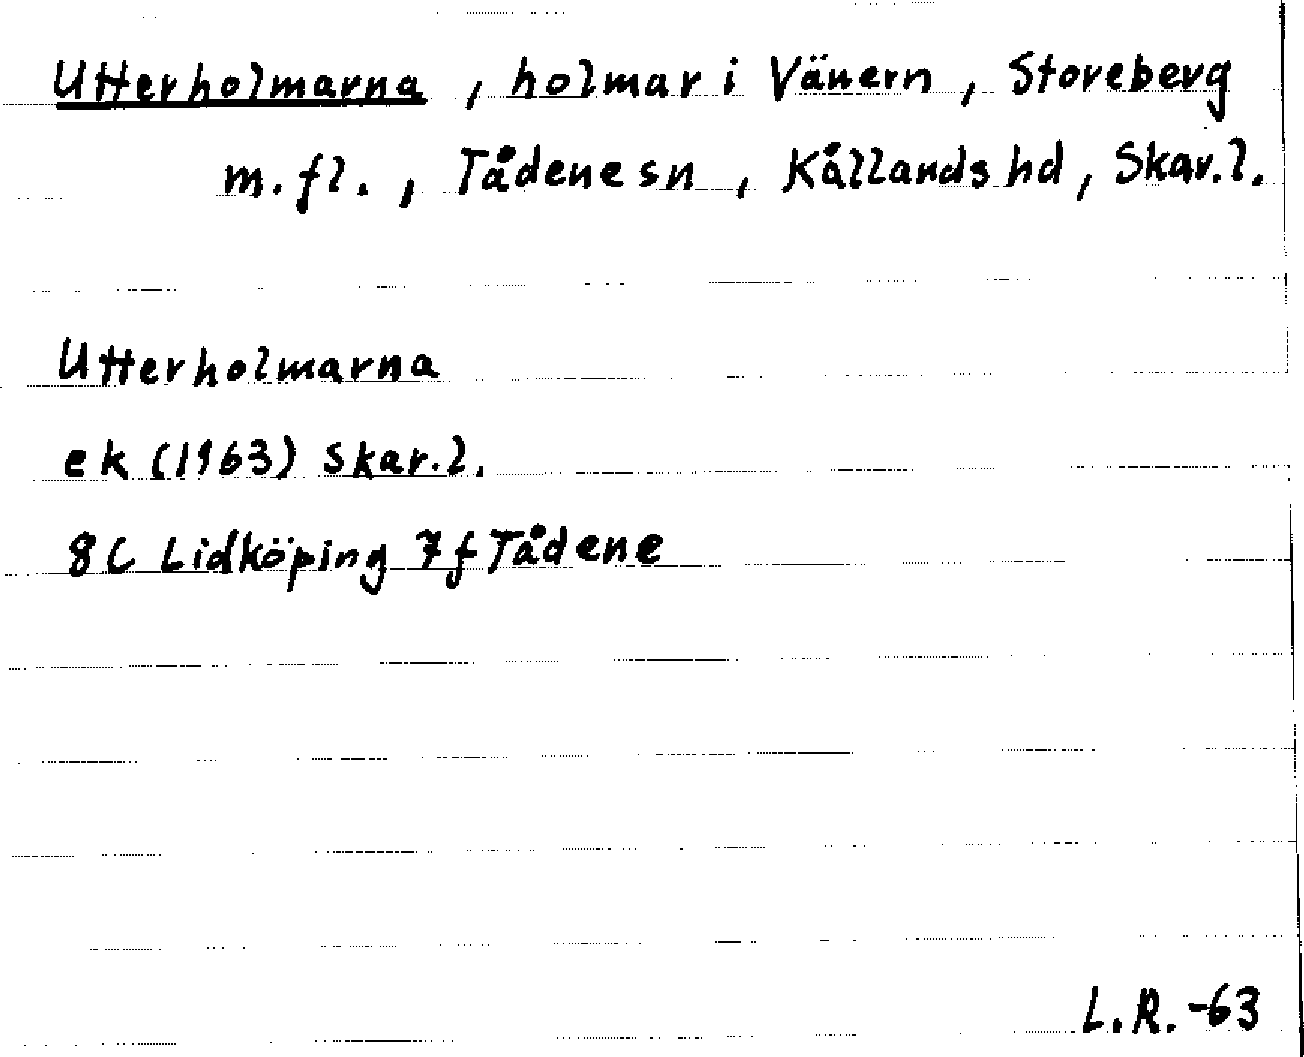 Utterholmarna, holmar i Vänern, Storeberg
m.fl., Tådene sn, Kållands hd, Skar.l.
Utterholmarna
ek (1963) Skar.l.
8C Lidköping 7f Tådene
L.R.-63